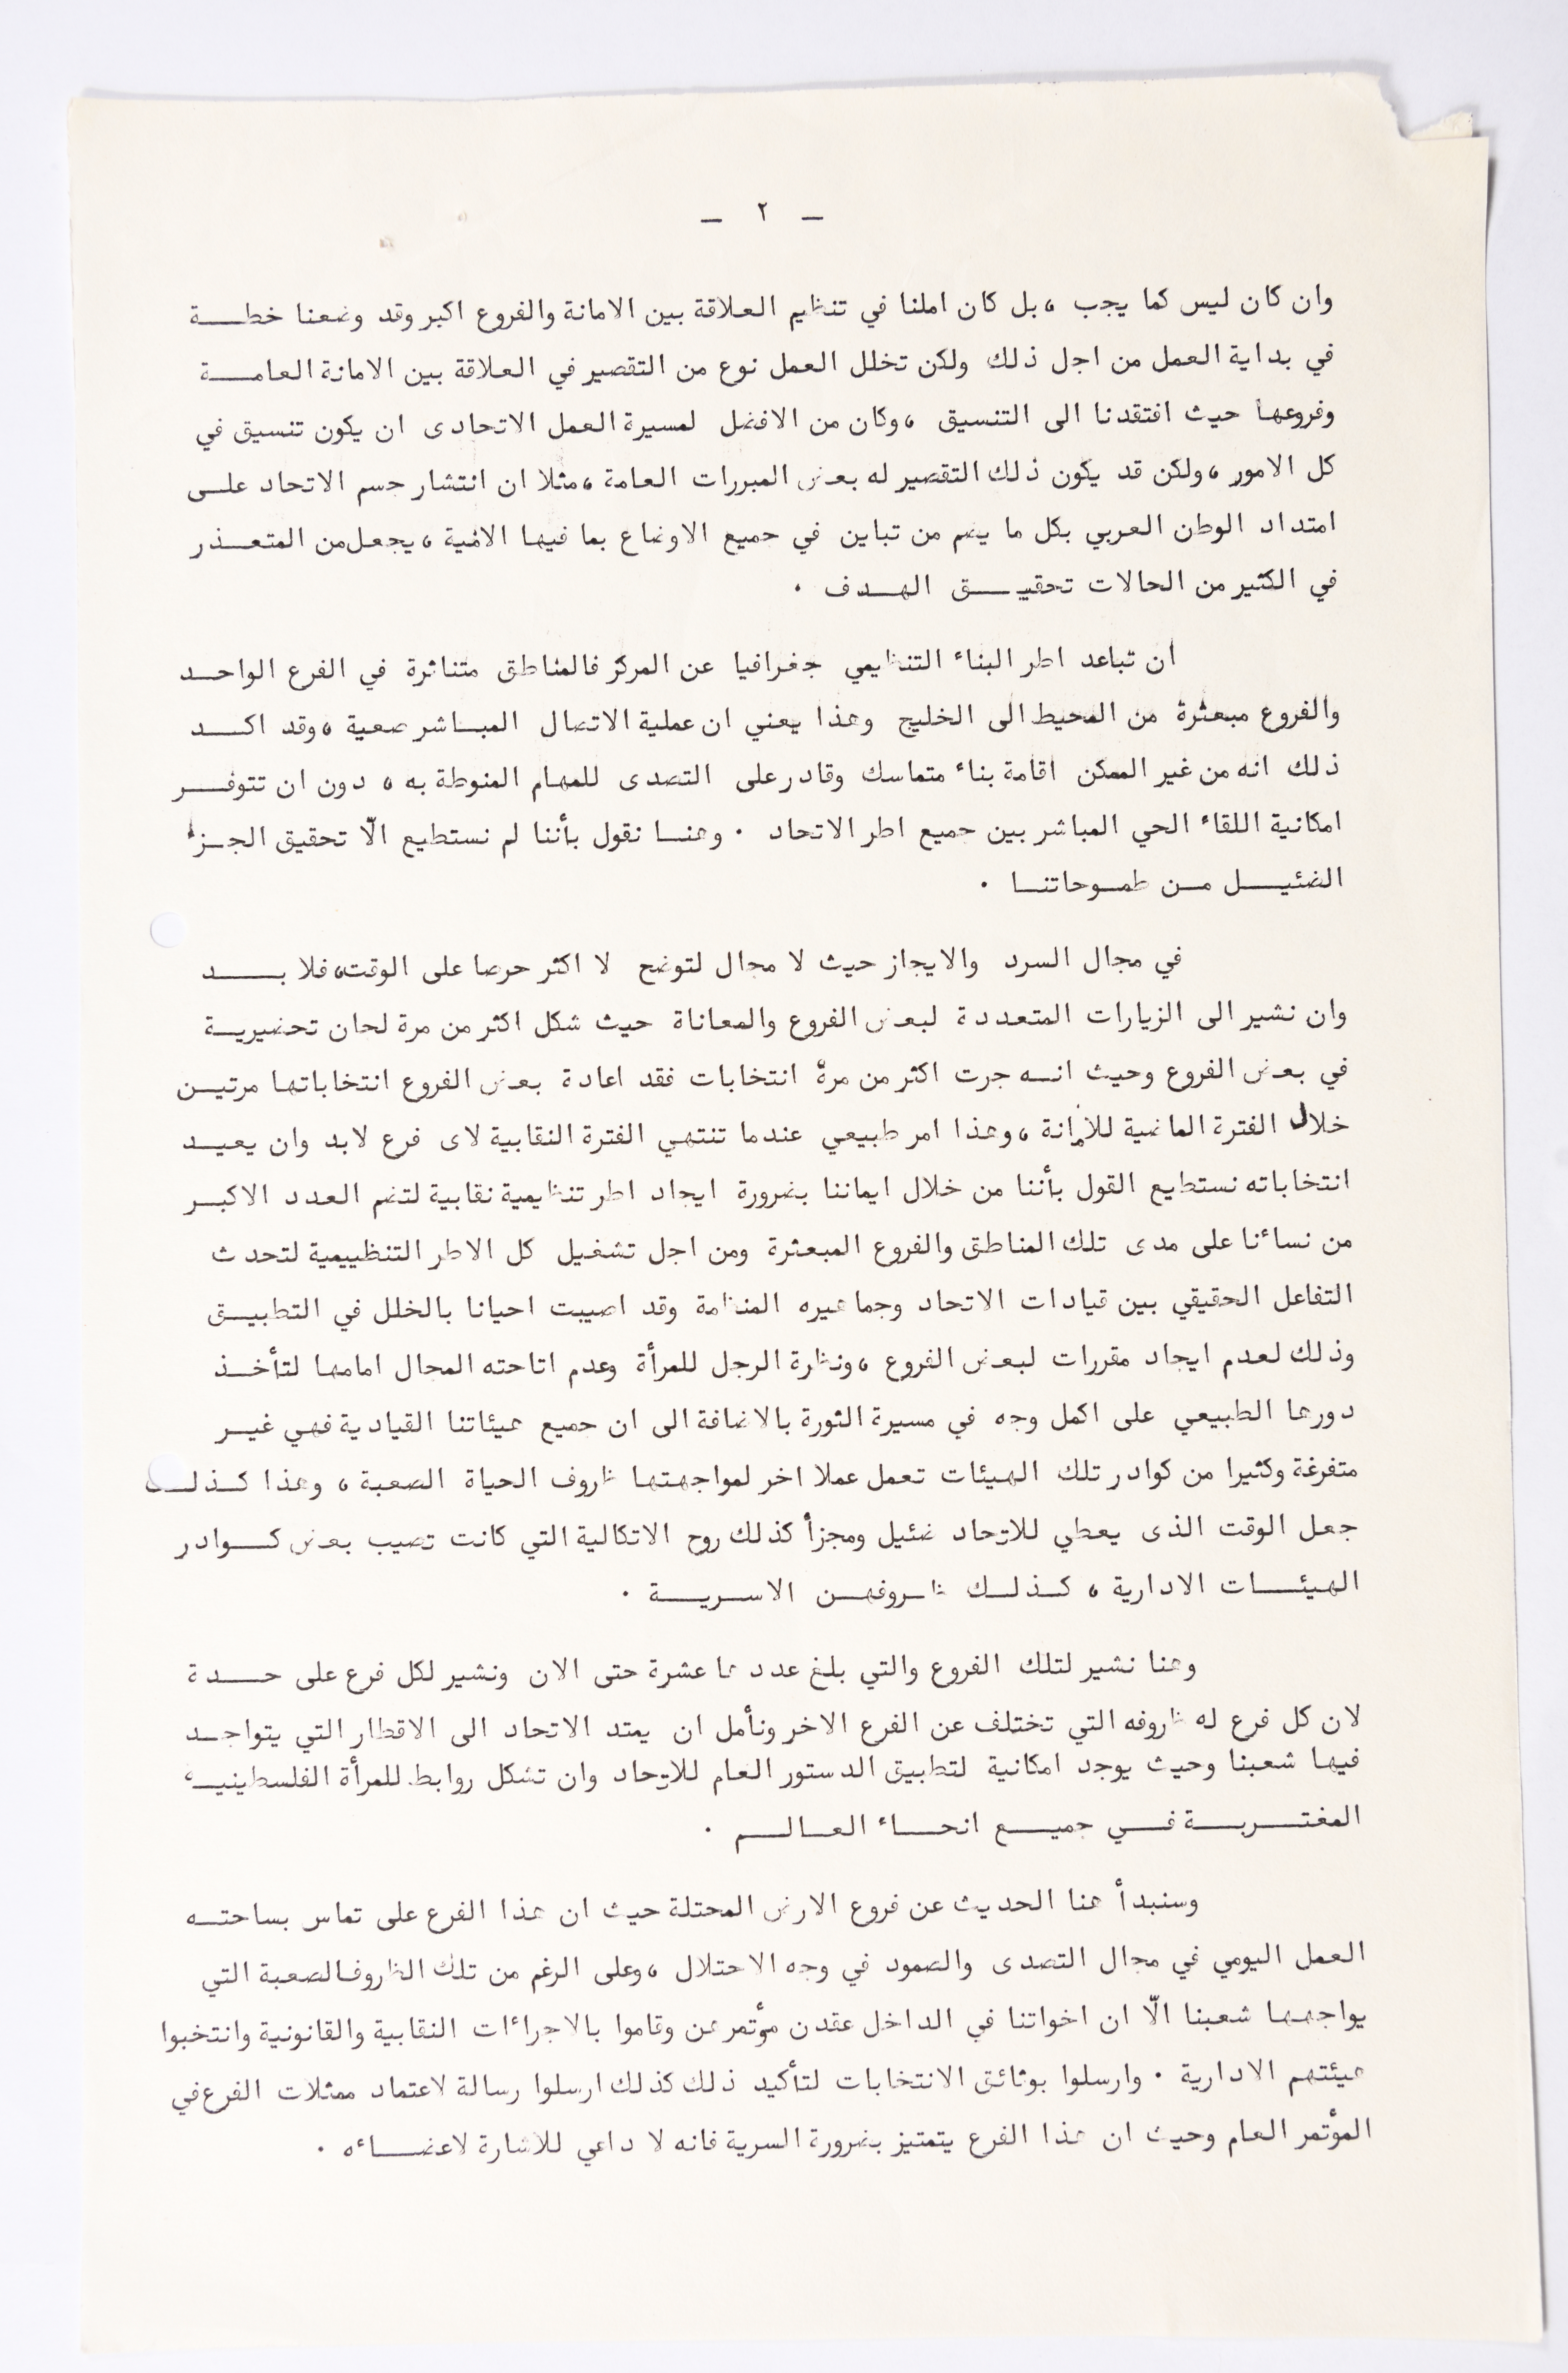 — ٢ —
وان كان ليس كما يجب ، بل كان املنا في تنظيم العلاقة بين الامانة والفروع اكبر وقد وضعنا خطـــة
في بداية العمل من اجل ذلك ولكن تخلل العمل نوع من التقصير في العلاقة بين الامانة العامـــة
وفروعها حيث افتقدنا الى التنسيق ، وكان من الافضل لمسيرة العمل الاتحادى ان يكون تنسيق في
كل الامور ، ولكن قد يكون ذلك التقصير له بعض المبررات العامة ، مثلا ان انتشار جسم الاتحاد علــى
امتداد الوطن العربي بكل ما يضم من تباين في جميع الاوضاع بما فيها الامنية ، يجعل من المتعـــذر
في الكثير من الحالات تحقيــــق الهــدف .
ان تباعد اطر البناء التنظيمي جغرافيا عن المركز فالمناطق متناثرة في الفرع الواحــد
والفروع مبعثرة من المحيط الى الخليج وهذا يعني ان عملية الاتصال المبــاشر صعبة ، وقد اكـــد
ذلك انه من غير الممكن اقامة بناء متماسك وقادر على التصدى للمهام المنوطة به ، دون ان تتوفـــر
امكانية اللقاء الحي المباشر بين جميع اطر الاتحاد . وهنــا نقول بأننا لم نستطيع الّا تحقيق الجــزء
الضئيــــل مــن طمــوحاتنــا .
في مجال السرد والايجاز حيث لا مجال لتوضح لا اكثر حرصا على الوقت، فلا بــــد
وان نشير الى الزيارات المتعددة لبعض الفروع والمعاناة حيث شكل اكثر من مرة لجان تحضيريــة
في بعض الفروع وحيث انــه جرت اكثر من مرة انتخابات فقد اعادة بعض الفروع انتخاباتها مرتيــن
خلال الفترة الماضية للأمانة ، وهذا امر طبيعي عندما تنتهي الفترة النقابية لاى فرع لابد وان يعيــد
انتخاباته نستطيع القول بأننا من خلال ايماننا بضرورة ايجاد اطر تنظيمية نقابية لتضم العدد الاكبــر
من نسائنا على مدى تلك المناطق والفروع المبعثرة ومن اجل تشغيل كل الاطر التنظييمية لتحدث
التفاعل الحقيقي بين قيادات الاتحاد وجماهيره المنظمة وقد اصيبت احيانا بالخلل في التطبيــق
وذلك لعدم ايجاد مقررات لبعض الفروع ، ونظرة الرجل للمرأة وعدم اتاحته المجال امامها لتأخــذ
دورها الطبيعي على اكمل وجه في مسيرة الثورة بالاضافة الى ان جميع هيئاتنا القيادية فهي غيــر
متفرغة وكثيرا من كوادر تلك الهيئات تعمل عملا اخر لمواجهتها ظروف الحياة الصعبة ، وهذا كــذلــك
جعل الوقت الذى يعطي للاتحاد ضئيل ومجزأ كذلك روح الاتكالية التي كانت تصيب بعض كــوادر
الهيئـــات الادارية ، كــذلــك ظــروفهــن الاســريــــة .
وهنا نشير لتلك الفروع والتي بلغ عددها عشرة حتى الان ونشير لكل فرع على حـــدة
لان كل فرع له ظروفه التي تختلف عن الفرع الاخر ونأمل ان يمتد الاتحاد الى الاقطار التي يتواجــد
فيها شعبنا وحيث يوجد امكانية لتطبيق الدستور العام للاتحاد وان تشكل روابط للمرأة الفلسطينيــة
المغتـــربــــة فــــي جميـــع انحـــاء العــالــــم .
وسنبدأ هنا الحديث عن فروع الارض المحتلة حيث ان هذا الفرع على تماس بساحتــه
العمل اليومي في مجال التصدى والصمود في وجه الاحتلال ، وعلى الرغم من تلك الظروف الصعبة التي
يواجهها شعبنا الّا ان اخواتنا في الداخل عقدن مؤتمرهن وقاموا بالاجراءات النقابية والقانونية وانتخبوا
هيئتهم الادارية . وارسلوا بوثائق الانتخابات لتأكيد ذلك كذلك ارسلوا رسالة لاعتماد ممثلات الفرع في
المؤتمر العام وحيث ان هذا الفرع يتمتيز بضرورة السرية فانه لا داعي للاشارة لاعضــــائه .